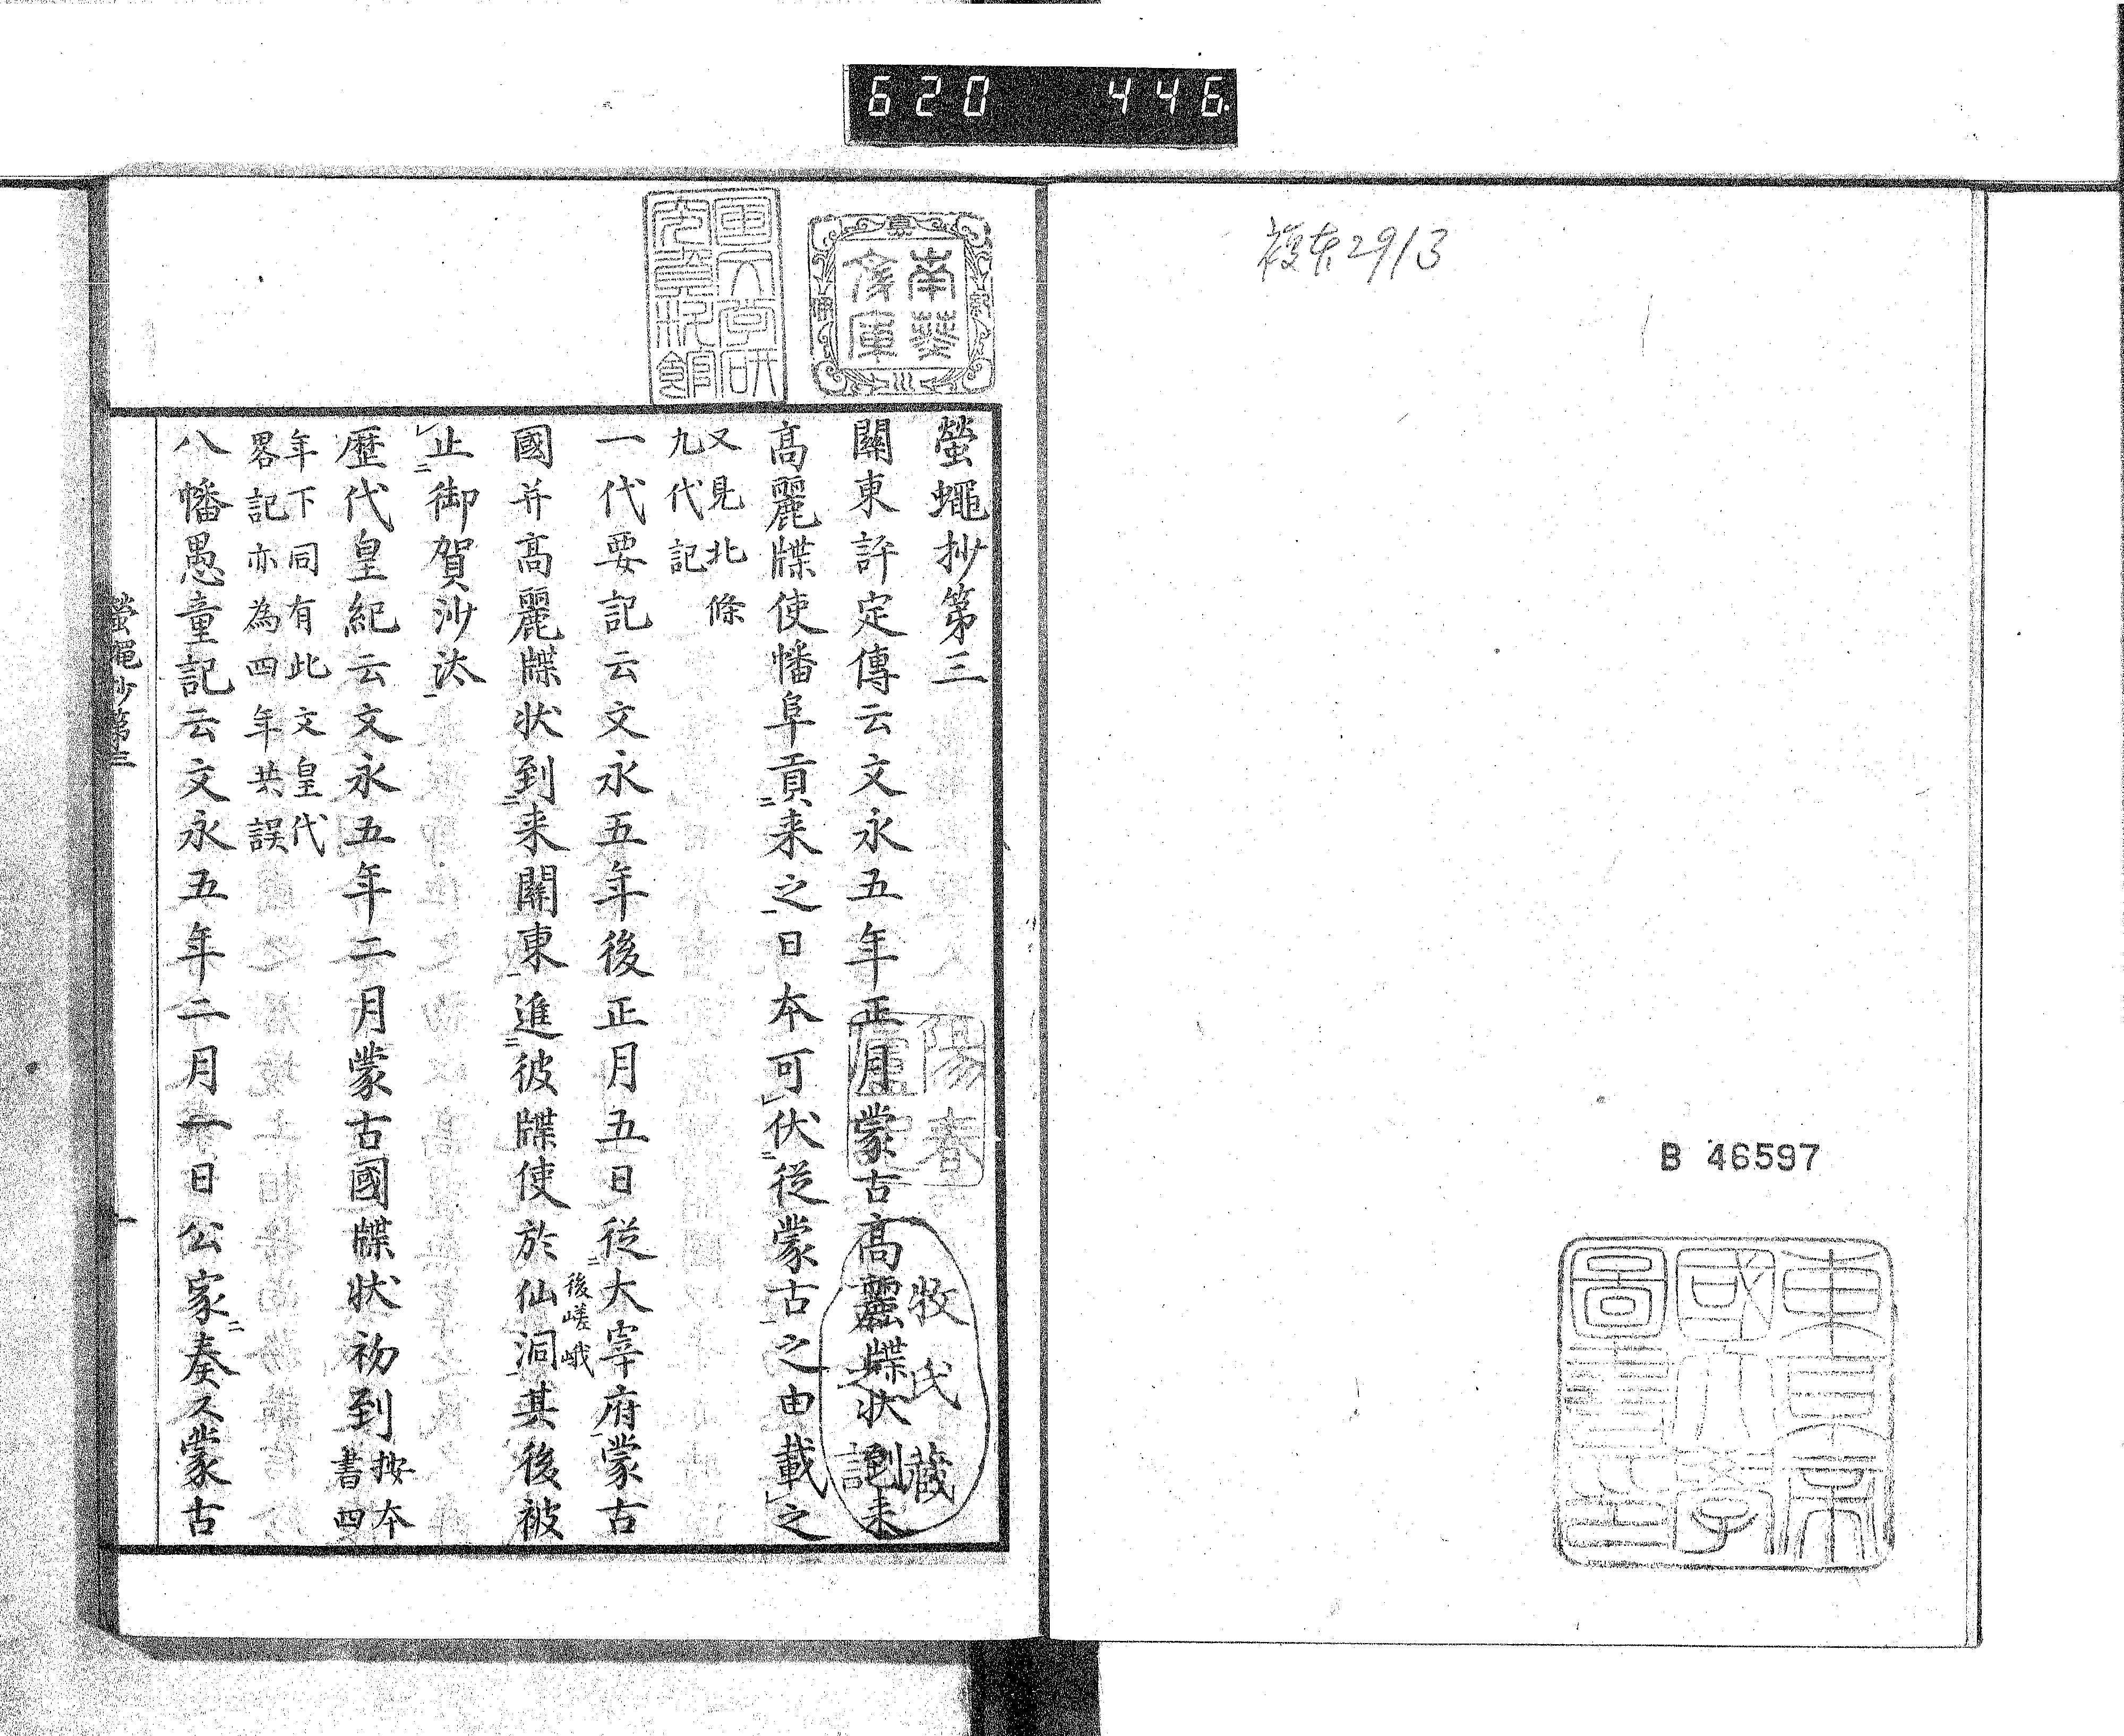 620 446
複本2913
B 46597
東京帝
國大學
圖書印
南葵
文庫
陽春
牧氏蔵
螢蠅抄第三
關東評定傳云文永五年正月蒙古高麗牒状到来
高麗牒使幡阜貢来之日本可伏從蒙古之由載之
又見北條
九代記
一代要記云文永五年後正月五日從大宰府蒙古
國并高麗牒状到来關東進彼牒使於仙洞其後被
後嵯峨
止御賀沙汰
歴代皇紀云文永五年二月蒙古國牒状初到
按本
書四
年下同有此文皇代
畧記亦為四年共誤
八幡愚童記云文永五年二月一日公家奏又蒙古
螢蠅抄第三
一